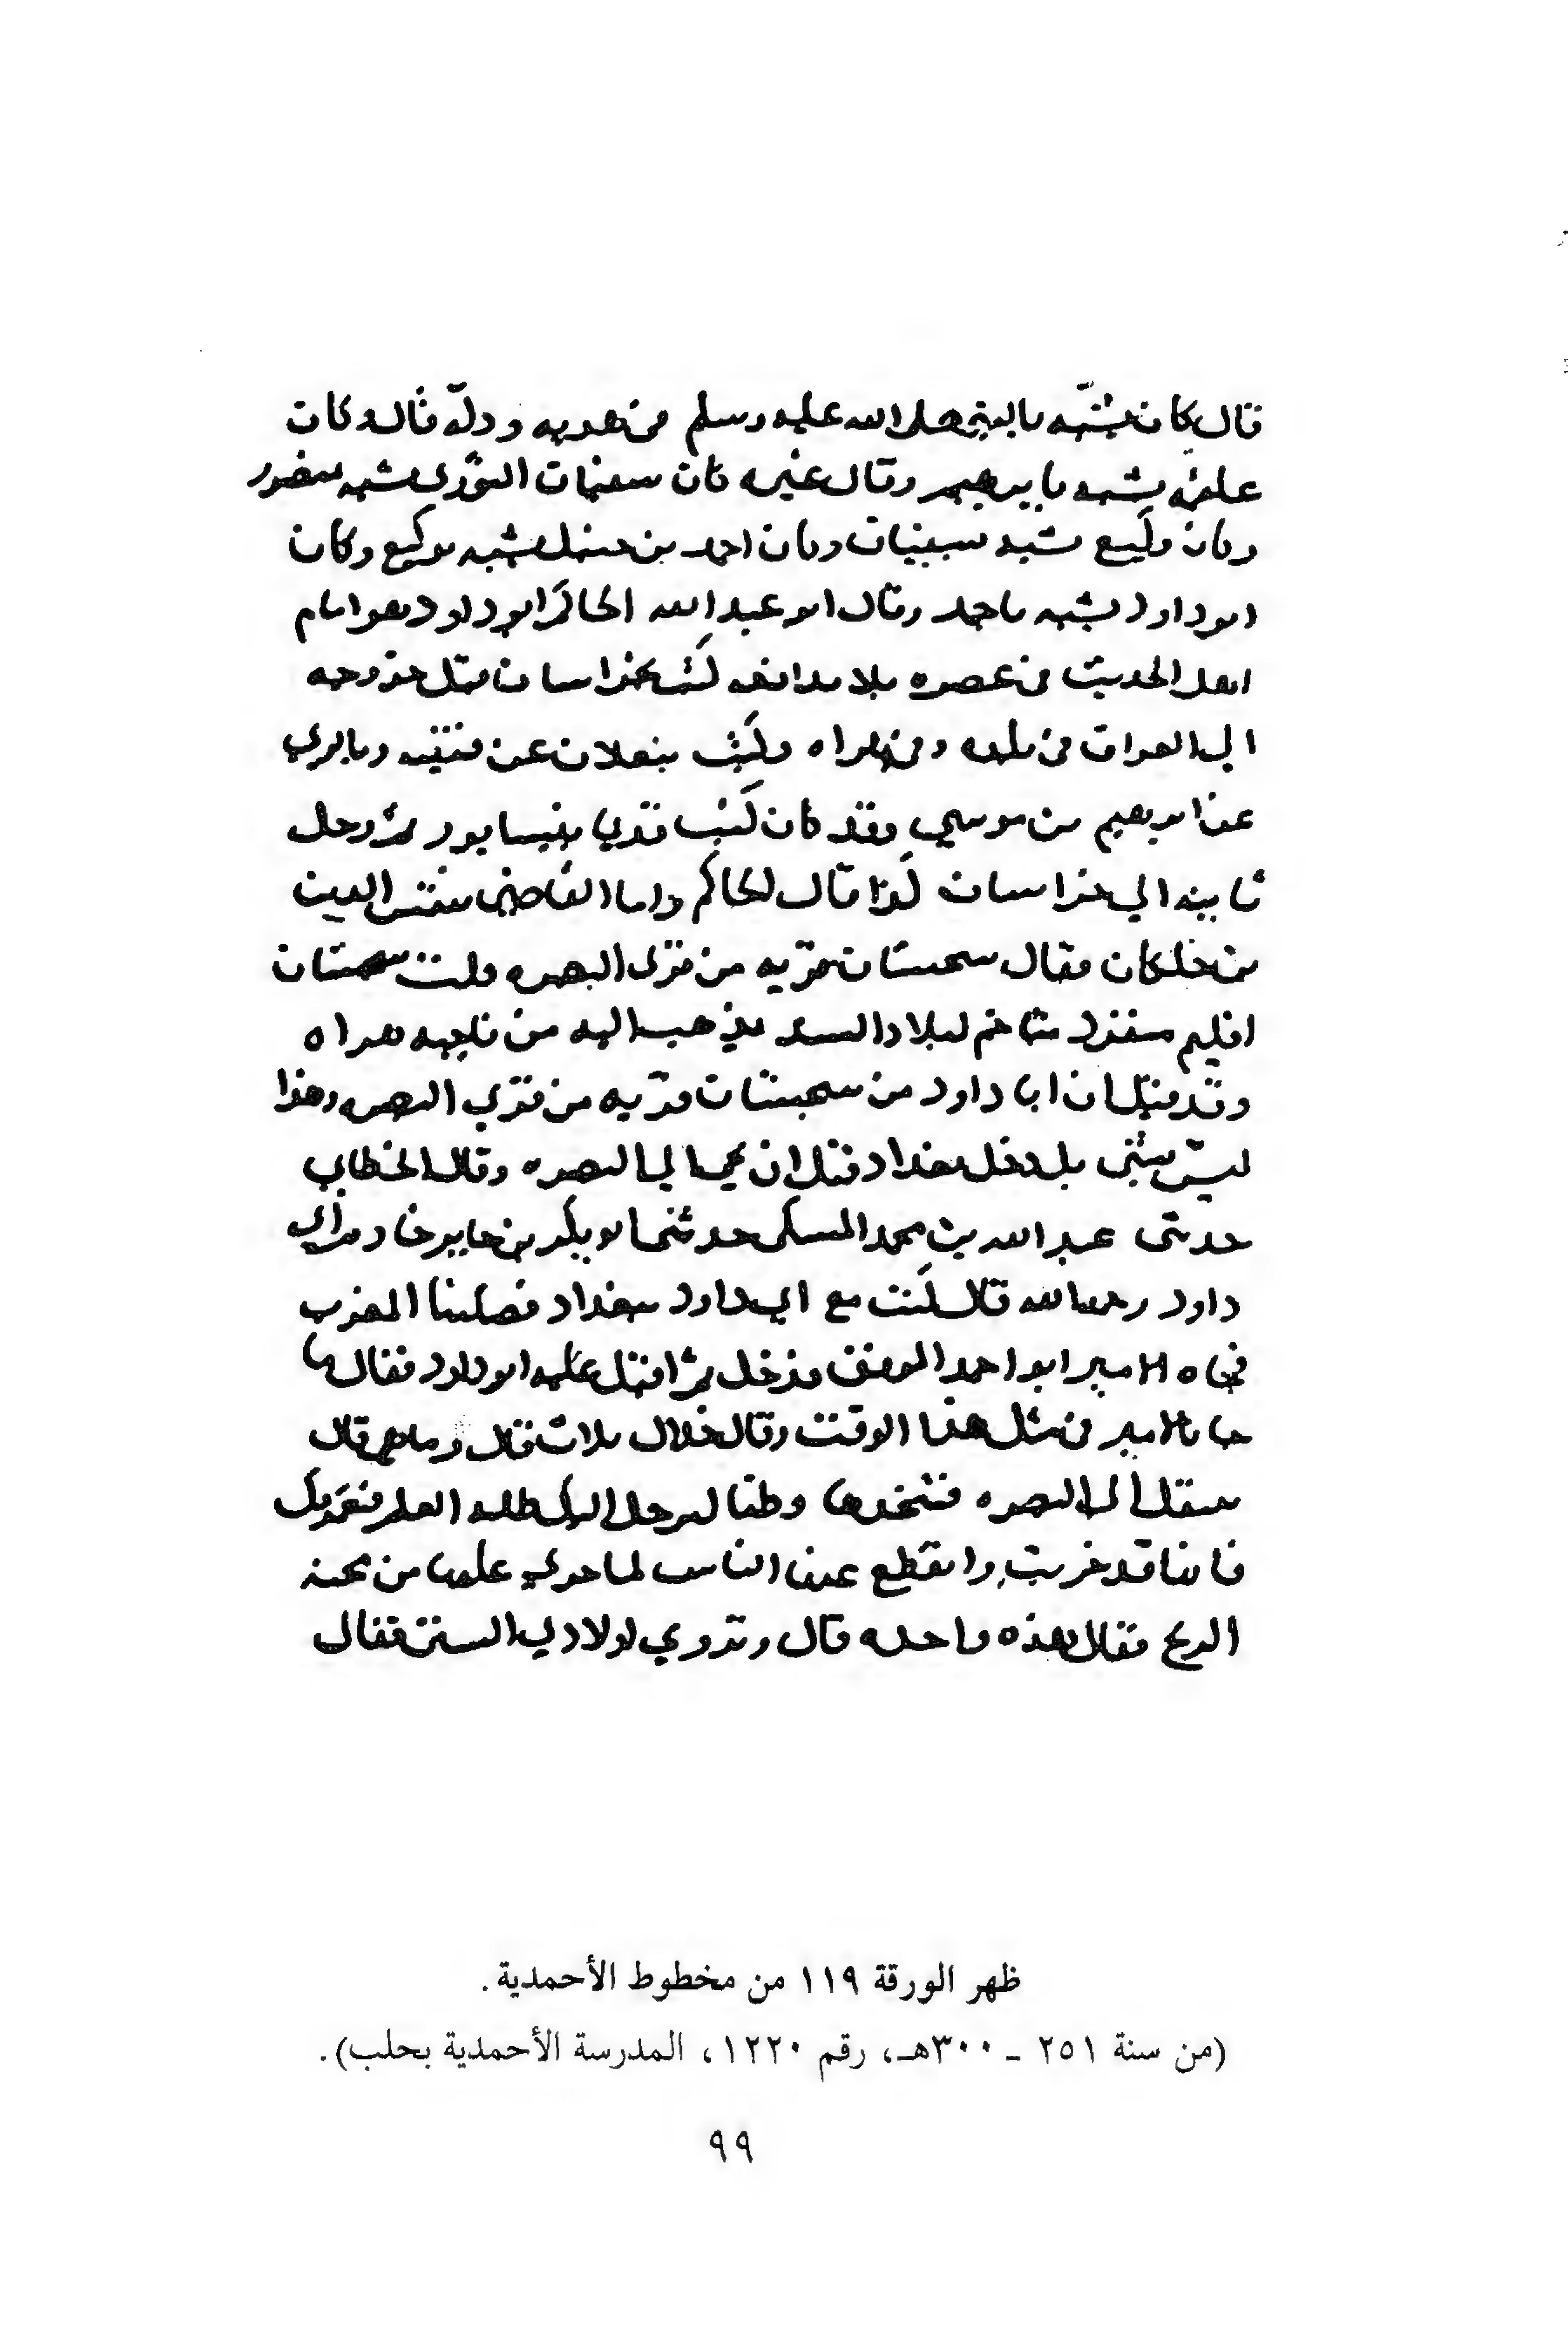 قال كان يشبه بالنبي صلى الله عليه وسلم في هديه ودله قال وكان
علقمه يشبه بابرهيم وقال غيره كان سفيان الثوري يشبه بمنصور
وكان وكيع يشبه بسفيان وكان احمد بن حنبل يشبه بوكيع وكان
ابو داود يشبه باحمد وقال ابو عبد الله الحاكم ابو داود هو امام
اهل الحديث في عصره بلا مدافعه كتب بخراسان قبل خروجه
الى العراق في بلده وفي هراه وكتب ببغلان عن قتيبه وبالري
عن ابرهيم بن موسى وقد كان كتب قديما بنيسابور ثم رحل
بابنه الى خراسان كذا قال الحاكم واما القاضي شمس الدين
بن خلكان فقال سجستان قريه من قرى البصره قلت سجستان
اقليم منفرد متاخم لبلاد السند يذهب اليه من ناحيه هراه
وقد قيل ان ابا داود من سجستان قريه من قرى البصره وهذا
ليس بشي بل دخل بغداد قبل ان يجي الى البصره وقال الخطابي
حدثني عبد الله بن محمد المسكي حدثني ابو بكر بن جابر خادم ابي
داود رحمه الله قال كنت مع ابي داود ببغداد فصلينا المغرب
فجاه الامير ابو احمد الموفق فدخل ثم اقبل عليه ابو داود فقال ما
جا بالامير في مثل هذا الوقت وقال خلال ثلاث قال وما هي قال
تنتقل الى البصره فتتخذها وطنا ليرحل اليك طلبه العلم فتعمر بك
فانها قد خربت وانقطع عنها الناس لما جرى عليها من محنه
الزنج فقال هذه واحده قال وتروي لاولادي السنن فقال
ظهر الورقة ١١٩ من مخطوط الأحمدية.
(من سنة ٢٥١ - ٣٠٠هـ، رقم ١٢٢٠، المدرسة الأحمدية بحلب).
٩٩